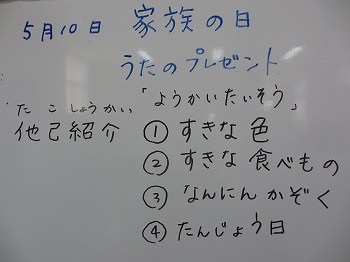 5月10日 家族の日
うたのプレゼント
「ようかいたいそう」
たこしょうかい
他己紹介 ①すきな色
②すきな食べもの
③なんにんかぞく
④たんじょう日